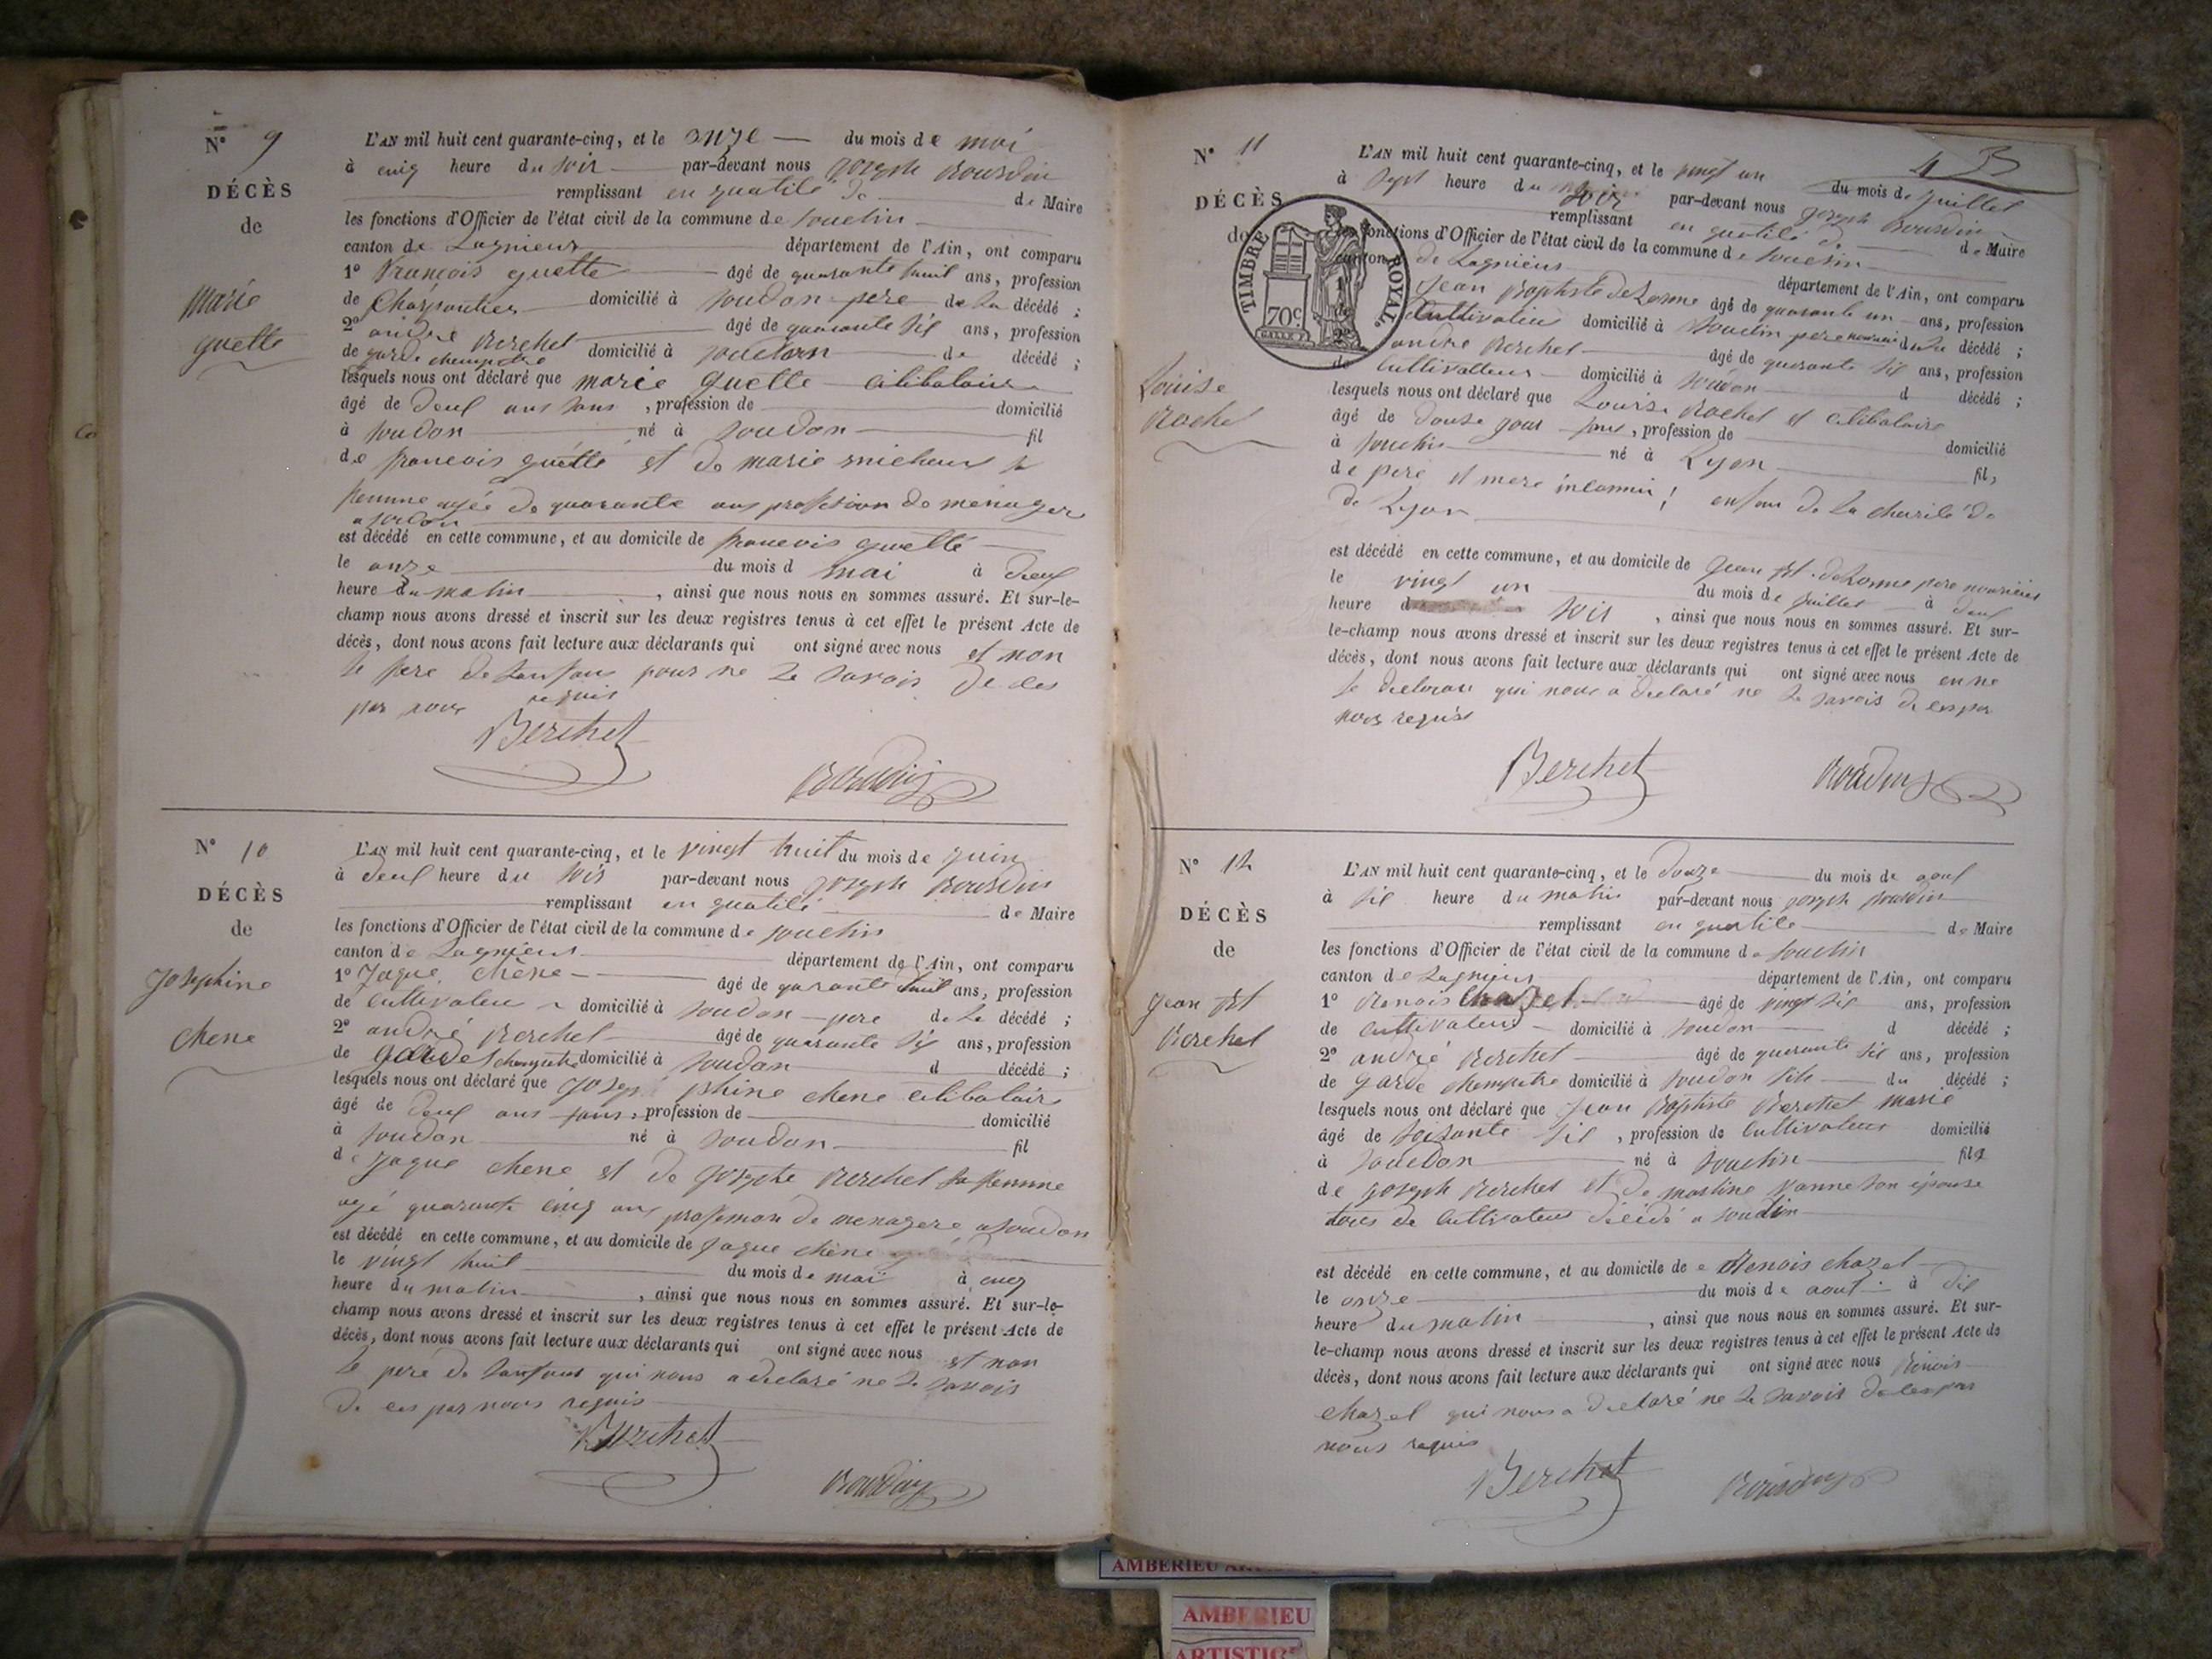 N° 9
DÉCÈS
de
Marie
guette
L'AN mil huit cent quarante-cinq, et le onze du mois de mai
à cinq heure du soir par-devant nous joseph Bourdin
remplissant en qualité de de Maire
les fonctions d'Officier de l'état civil de la commune de souclin
canton de Lagnieux département de l'Ain, ont comparu
1° François guette âgé de quarante huit ans, profession
de Charpentier domicilié à soudon pere de La décédé ;
2° andré Berchet âgé de quarante sis ans, profession
de garde champetre domicilié à de décédé ;
lesquels nous ont déclaré que marie guette célibataire
âgé de deux ans sans , profession de domicilié
à soudon né à soudon fil
de francois guette et de marie michoux sa
femme agée de quarante ans profession de menagere
a soudon
est décédé en cette commune, et au domicile de francois guette
le onze du mois d mai à deux
heure du matin , ainsi que nous nous en sommes assuré. Et sur-le-
champ nous avons dressé et inscrit sur les deux registres tenus à cet effet le présent Acte de
décès, dont nous avons fait lecture aux déclarants qui ont signé avec nous et non
le pere de Lenfans pour ne Le savoir de
par nous requis
Berchet
Bourdin
N° 10
DÉCÈS
de
Josephine
chene
L'AN mil huit cent quarante-cinq, et le vingt huit du mois de juin
à deux heure du soir par-devant nous joseph Bourdin
remplissant en qualité de Maire
les fonctions d'Officier de l'état civil de la commune de souclin
canton de Lagnieux département de l'Ain, ont comparu
1° Jaque chene âgé de quarante huit ans, profession
de cultivateu domicilié à soudon pere de La décédé ;
2° andré Berchet âgé de quarante sis ans, profession
de garde champetre domicilié à soudon d décédé ;
lesquels nous ont déclaré que josep phine chene célibataire
âgé de deux ans sans , profession de domicilié
à soudon né à soudon fil
de Jaque chene et de josephe Berchet sa femme
agé quarante cinq ans profession de menagere a soudon
est décédé en cette commune, et au domicile de Jaque chene
le vingt huit du mois de mai à cinq
heure du matin , ainsi que nous nous en sommes assuré. Et sur-le-
champ nous avons dressé et inscrit sur les deux registres tenus à cet effet le présent Acte de
décès, dont nous avons fait lecture aux déclarants qui ont signé avec nous et non
le pere de Lenfant qui nous a declaré ne Le savoir
de par nous requis
Berchet
Bourdin
N° 11
DÉCÈS
de
Louise
Rachel
TIMBRE ROYAL.
70c
L'AN mil huit cent quarante-cinq, et le vingt un du mois de juillet
à sept heure du soir par-devant nous joseph Bourdin
remplissant en qualité de de Maire
les fonctions d'Officier de l'état civil de la commune de souclin
canton de Lagnieux département de l'Ain, ont comparu
1° Jean Baptiste deLorme âgé de quarante un ans, profession
de Cultivateu domicilié à souclin pere de La décédé ;
2° andre Berchet âgé de quarante sis ans, profession
de cultivateur domicilié à soudon d décédé ;
lesquels nous ont déclaré que Louise Rachel et célibataire
âgé de douze jour sans , profession de domicilié
à souclin né à Lyon fil,
de pere et mere inconnu ! enfan de La charité de
de Lyon
est décédé en cette commune, et au domicile de Jean Bt. deLorme pere nouricier
le vingt un du mois de juillet à deux
heure d soir , ainsi que nous nous en sommes assuré. Et sur-
le-champ nous avons dressé et inscrit sur les deux registres tenus à cet effet le présent Acte de
décès, dont nous avons fait lecture aux déclarants qui ont signé avec nous
le declaran qui nous a declaré ne Le savoir de par
nous requis
Berchet
Bourdin
N° 12
DÉCÈS
de
Jean Bt
Berchet
L'AN mil huit cent quarante-cinq, et le douze du mois de aout
à sis heure du matin par-devant nous joseph Bourdin
remplissant en qualité de Maire
les fonctions d'Officier de l'état civil de la commune de souclin
canton de Lagnieux département de l'Ain, ont comparu
1° Benois Chazel âgé de vingt sis ans, profession
de cultivateur domicilié à soudon d décédé ;
2° andré Berchet âgé de quarante sis ans, profession
de garde champetre domicilié à soudon fils du décédé ;
lesquels nous ont déclaré que Jean Baptiste Berchet marié
âgé de soisante sis , profession de cultivateur domicilié
à soudon né à souclin fils
de joseph Berchet et de son épouse
tous de cultivateur décédé a souclin
est décédé en cette commune, et au domicile de Benois chazel
le onze du mois de aout à dis
heure du matin , ainsi que nous nous en sommes assuré. Et sur-
le-champ nous avons dressé et inscrit sur les deux registres tenus à cet effet le présent Acte de
décès, dont nous avons fait lecture aux déclarants qui ont signé avec nous Benois
chazel qui nous a declaré ne Le savoir de par
nous requis
Berchet
Bourdin
AMBERIEU
AMBERIEU
ARTISTIC